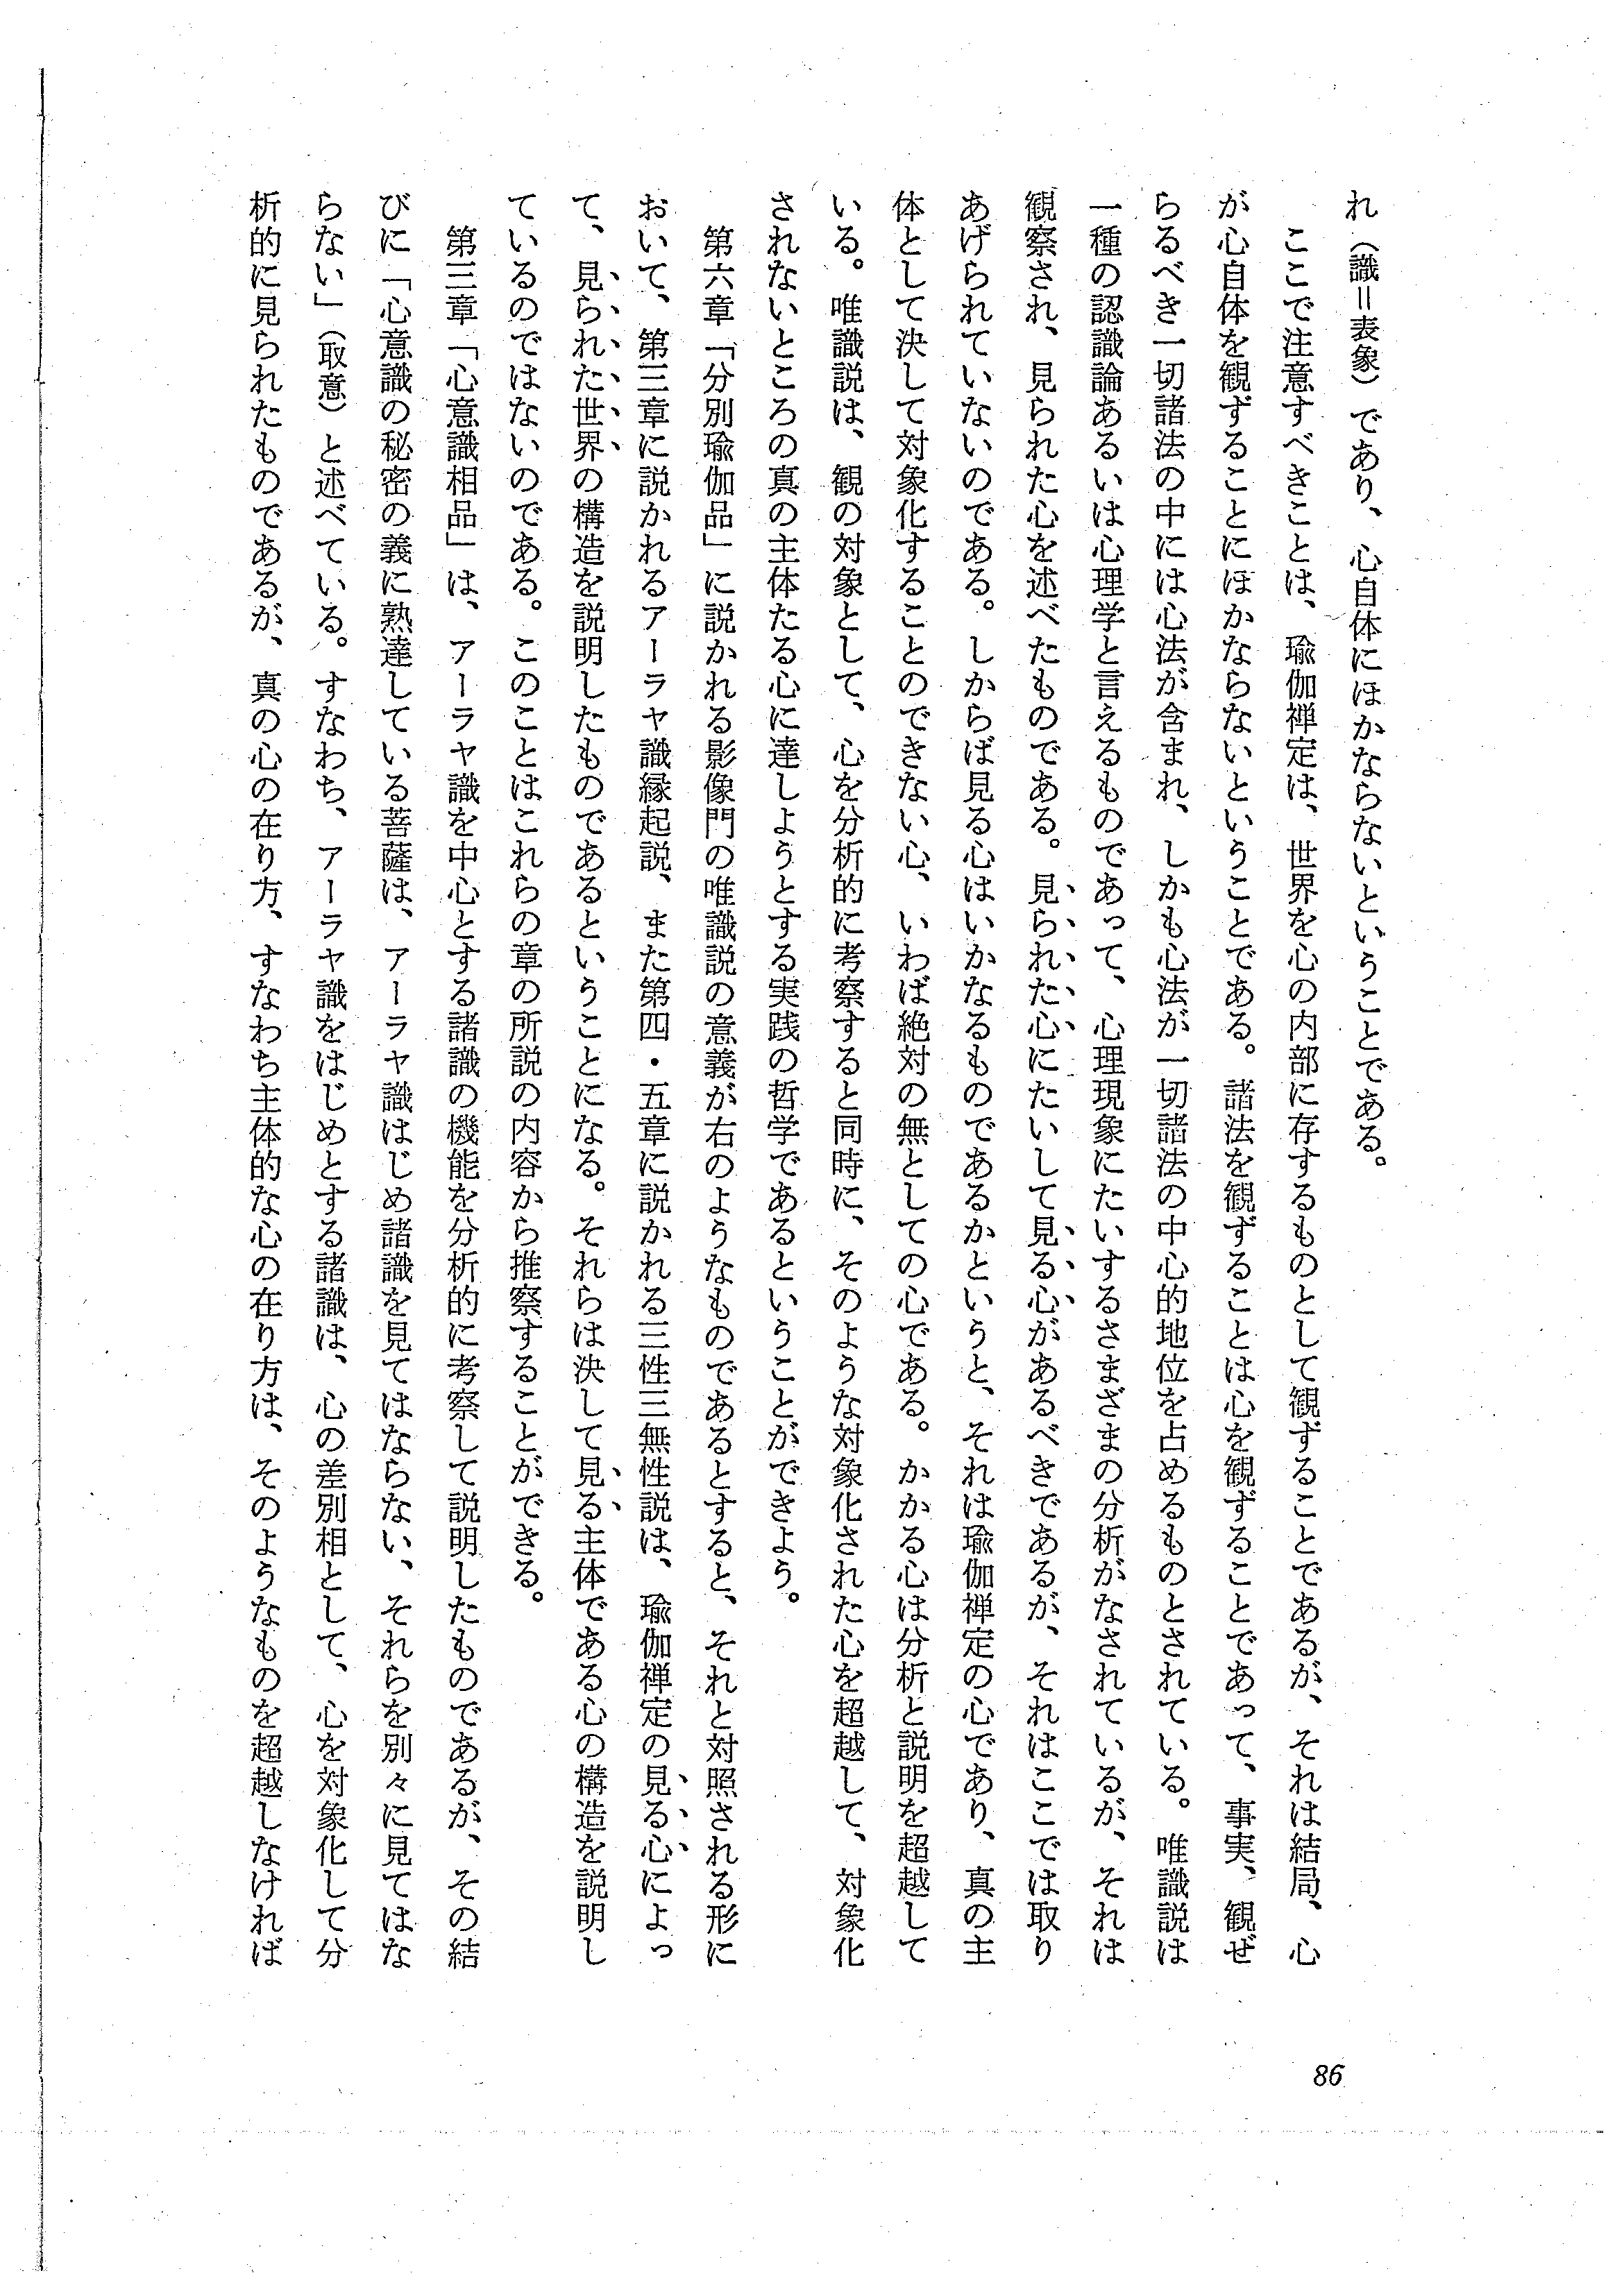 れ（識＝表象）であり、心自体にほかならないということである。
ここで注意すべきことは、瑜伽禅定は、世界を心の内部に存するものとして観ずることであるが、それは結局、心
が心自体を観ずることにほかならないということである。諸法を観ずることは心を観ずることであって、事実、観ぜ
らるべき一切諸法の中には心法が含まれ、しかも心法が一切諸法の中心的地位を占めるものとされている。唯識説は
一種の認識論あるいは心理学と言えるものであって、心理現象にたいするさまざまの分析がなされているが、それは
観察され、見られた心を述べたものである。見られた心にたいして見る心があるべきであるが、それはここでは取り
あげられていないのである。しからば見る心はいかなるものであるかというと、それは瑜伽禅定の心であり、真の主
体として決して対象化することのできない心、いわば絶対の無としての心である。かかる心は分析と説明を超越して
いる。唯識説は、観の対象として、心を分析的に考察すると同時に、そのような対象化された心を超越して、対象化
されないところの真の主体たる心に達しようとする実践の哲学であるということができよう。
第六章「分別瑜伽品」に説かれる影像門の唯識説の意義が右のようなものであるとすると、それと対照される形に
おいて、第三章に説かれるアーラヤ識縁起説、また第四・五章に説かれる三性三無性説は、瑜伽禅定の見る心によっ
て、見られた世界の構造を説明したものであるということになる。それらは決して見る主体である心の構造を説明し
ているのではないのである。このことはこれらの章の所説の内容から推察することができる。
第三章「心意識相品」は、アーラヤ識を中心とする諸識の機能を分析的に考察して説明したものであるが、その結
びに「心意識の秘密の義に熟達している菩薩は、アーラヤ識はじめ諸識を見てはならない、それらを別々に見てはな
らない」（取意）と述べている。すなわち、アーラヤ識をはじめとする諸識は、心の差別相として、心を対象化して分
析的に見られたものであるが、真の心の在り方、すなわち主体的な心の在り方は、そのようなものを超越しなければ
86